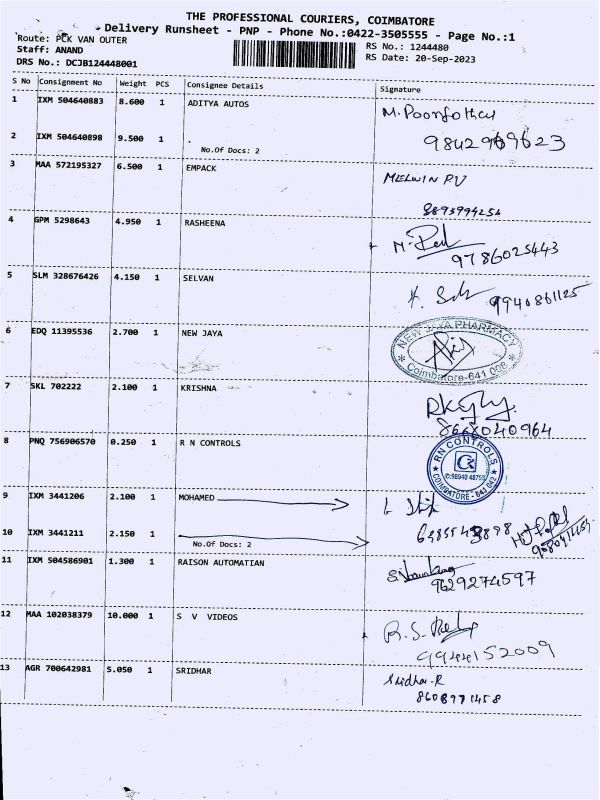 THE PROFESSIONAL COURIERS, COIMBATORE
Delivery Runsheet - PNP - Phone No.:0422-3505555 - Page No.:1
Route: PCK VAN OUTER
Staff: ANAND
DRS No.: DCJB124448001
RS No.: 1244480
RS Date: 20-Sep-2023
S No Consignment No Weight PCS Consignee Details Signature
1 IXM 504640883 8.600 1 ADITYA AUTOS
2 IXM 504640898 9.500 1
No.Of Docs: 2
3 MAA 572195327 6.500 1 EMPACK
MELWIN P.V
4 GPM 5298643 4.950 1 RASHEENA
9786025443
5 SLM 328676426 4.150 1 SELVAN
9940861125
6 EDQ 11395536 2.700 1 NEW JAYA
PHARMACY
Coimbatore-641 006
7 SKL 702222 2.100 1 KRISHNA
8668040964
8 PNQ 756906570 0.250 1 R N CONTROLS
RN CONTROLS
COIMBATORE
9 IXM 3441206 2.100 1 MOHAMED
10 IXM 3441211 2.150 1
No.Of Docs: 2
11 IXM 504586901 1.300 1 RAISON AUTOMATIAN
9629274597
12 MAA 102038379 10.000 1 S V VIDEOS
9944152009
13 AGR 700642981 5.050 1 SRIDHAR
Sridhar-R
8608971458